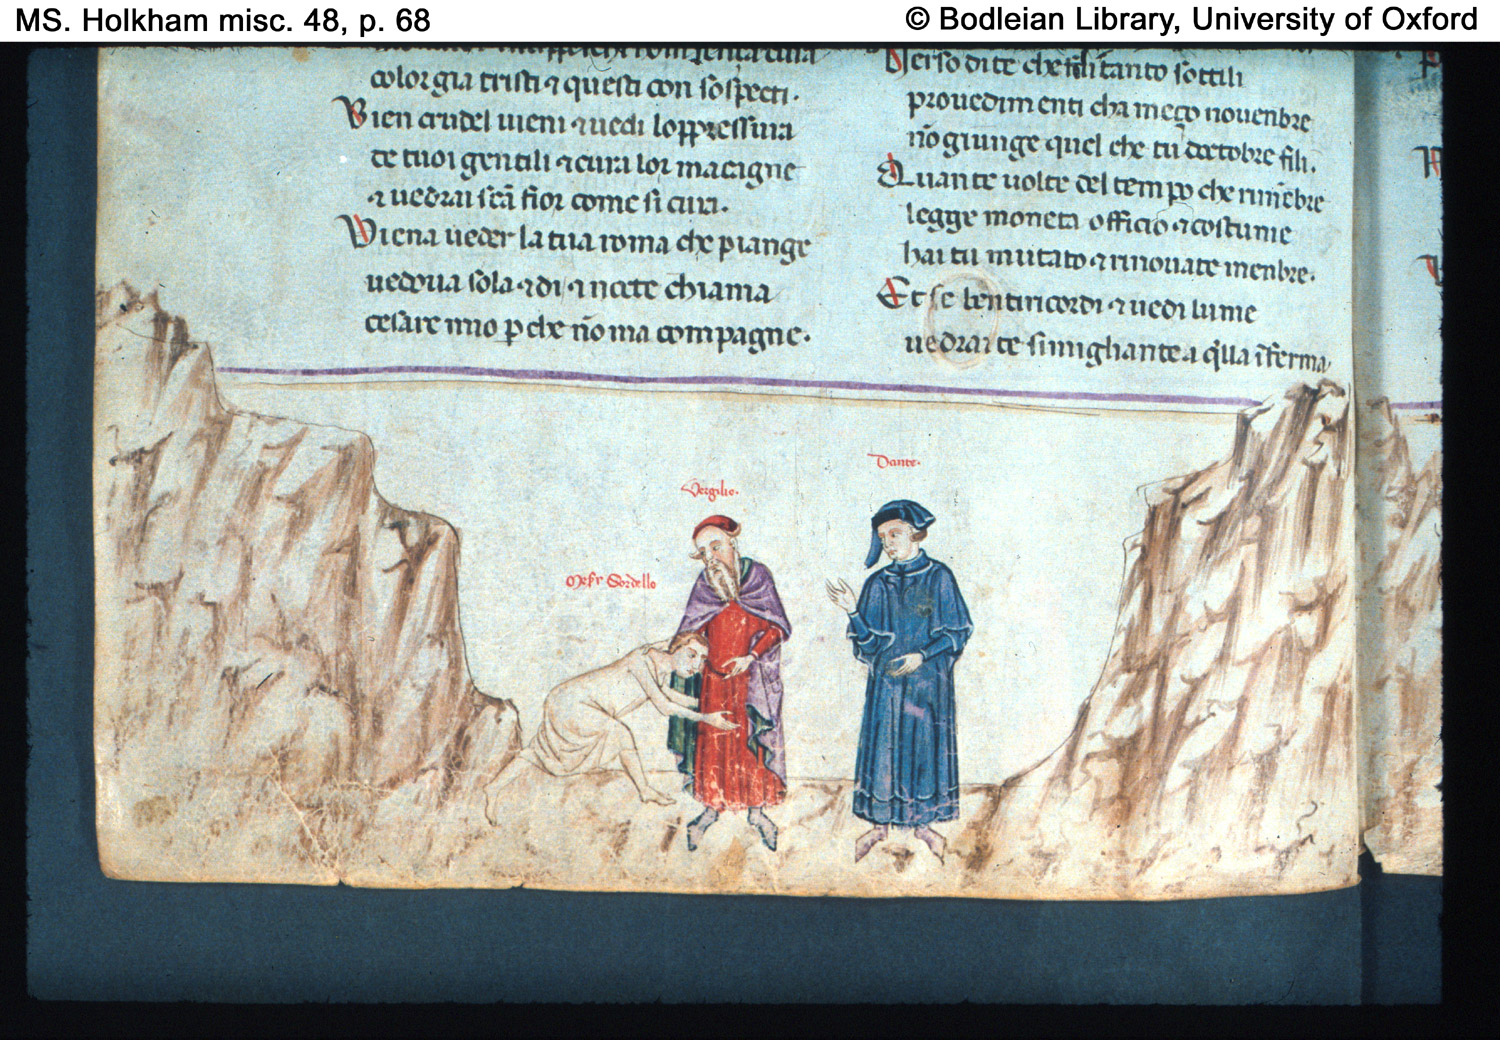 MS. Holkham misc. 48, p. 68
© Bodleian Library, University of Oxford
color gia tristi ⁊ questi con sospecti.
Vien crudel uieni ⁊ uedi lopressura
de tuoi gentili ⁊ cura lor magagne
⁊ uedrai scã fior come si cura.
Viena ueder la tua roma che piange
uedoua sola ⁊ di ⁊ nocte chiama
cesare mio p che nõ ma compagne.
Verso di te che fili tanto sottili
prouedimenti cha meço nouenbre
nõ giunge quel che tu doctobre fili.
Quante uolte del tempo che rimẽbre
legge moneta officio ⁊ costume
hai tu mutato ⁊ rinouate menbre.
Et se ben ti ricordi ⁊ uedi lume
uedrai te simigliante a q̃lla ĩferma
Dante.
Vergilio.
Mesr Sordello